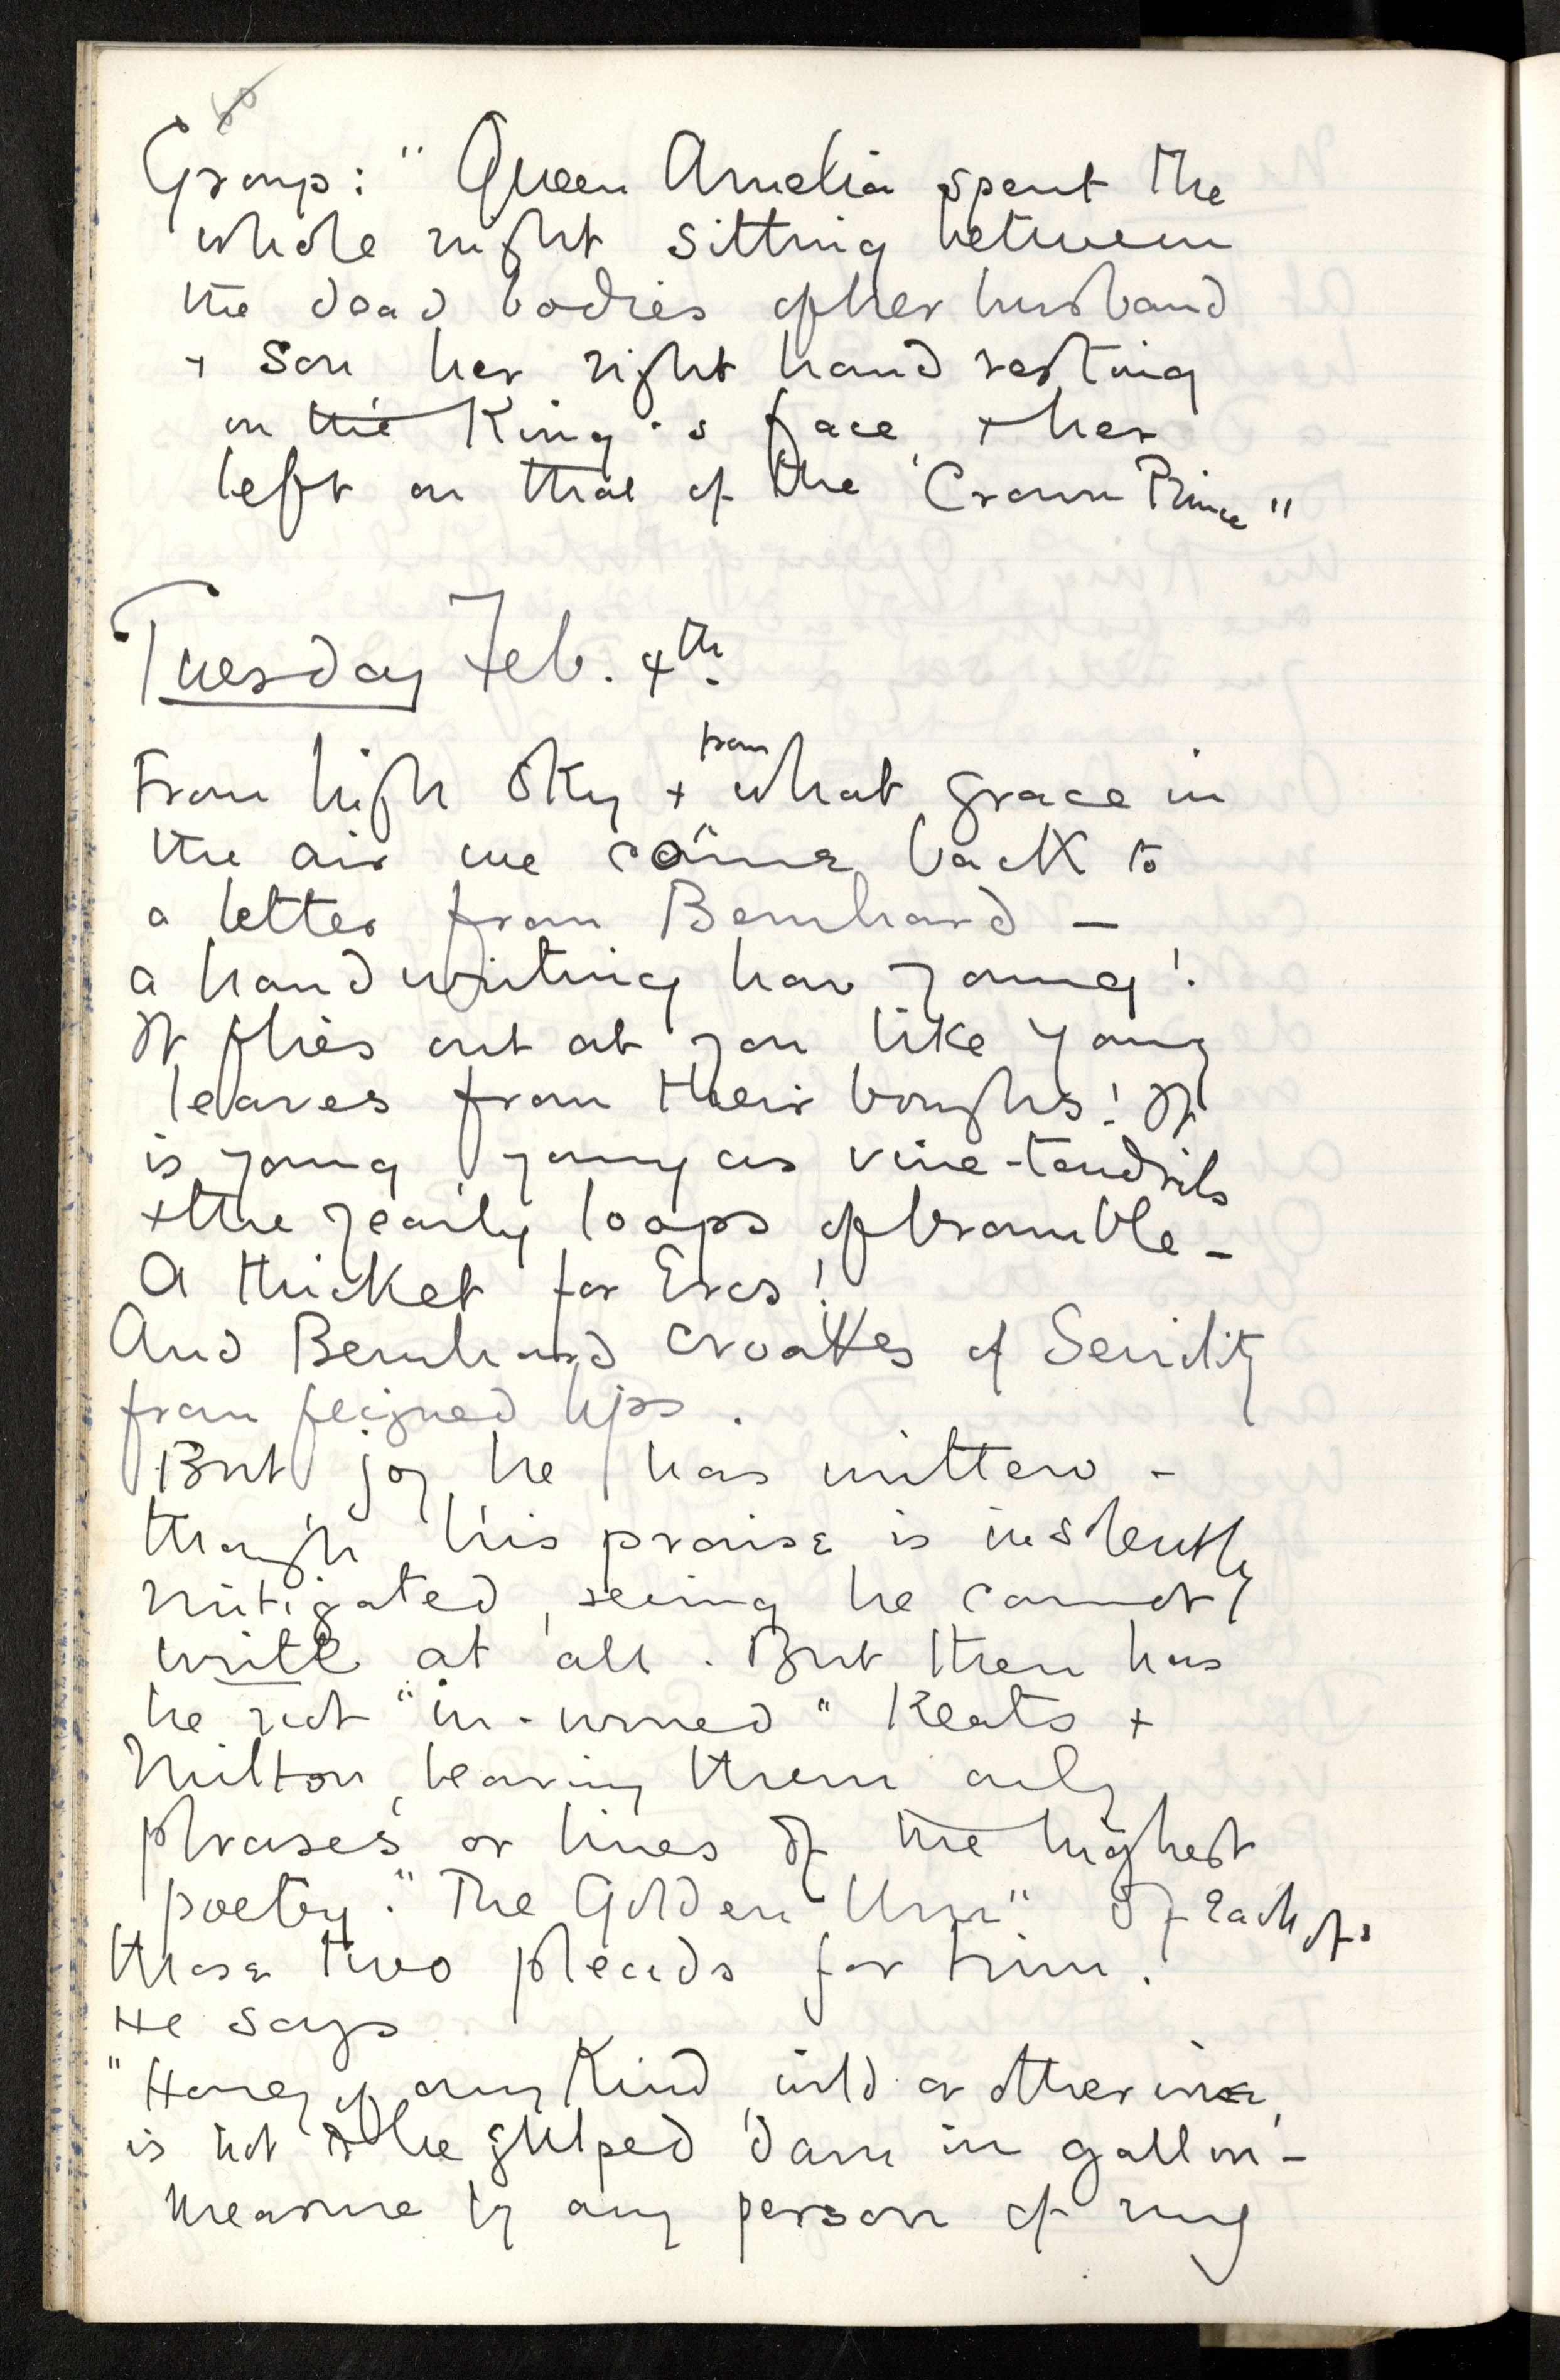 Group: " Queen Amelia spent the
whole night sitting between
the dead bodies of her husband
+ son her right hand resting
on the King's face, + her
left on that of the Crown Prince"
Tuesday Feb. 4th.
From high sky + from what grace in
the air we came back to
a letter from Bernhard —
a handwriting how young!
It flies out at you like young
leaves from their boughs! It
is young young as vine-tendrils
+ the yearly loops of bramble —
A thicket for Eros!
And Bernhard croakes of Senility
from feigned lips.
But joy he has written -
though his praise is
mitigated, seeing he cannot
write at all. But then has
he not "in-urned" Keats +
Milton, leaving them only
phrases or lines of the highest
poetry. "The Golden Urn" of each of
those two pleads for him.
He says
"Honey of any kind, wild or otherwise,
is not to be gulped down in gallon-
measure by any person of my